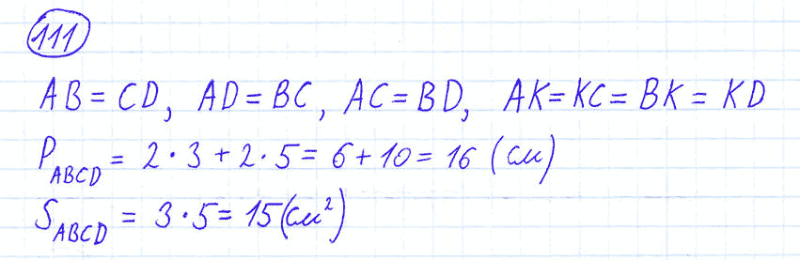 111
AB = CD, AD = BC, AC = BD, AK = KC = BK = KD
P_ABCD = 2 · 3 + 2 · 5 = 6 + 10 = 16 (см)
S_ABCD = 3 · 5 = 15 (см²)